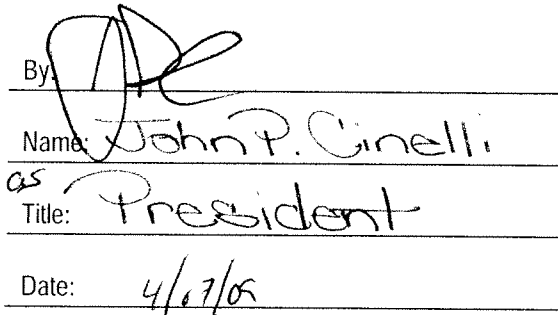 By:
Name: John P. Cinelli
as
Title: President
Date: